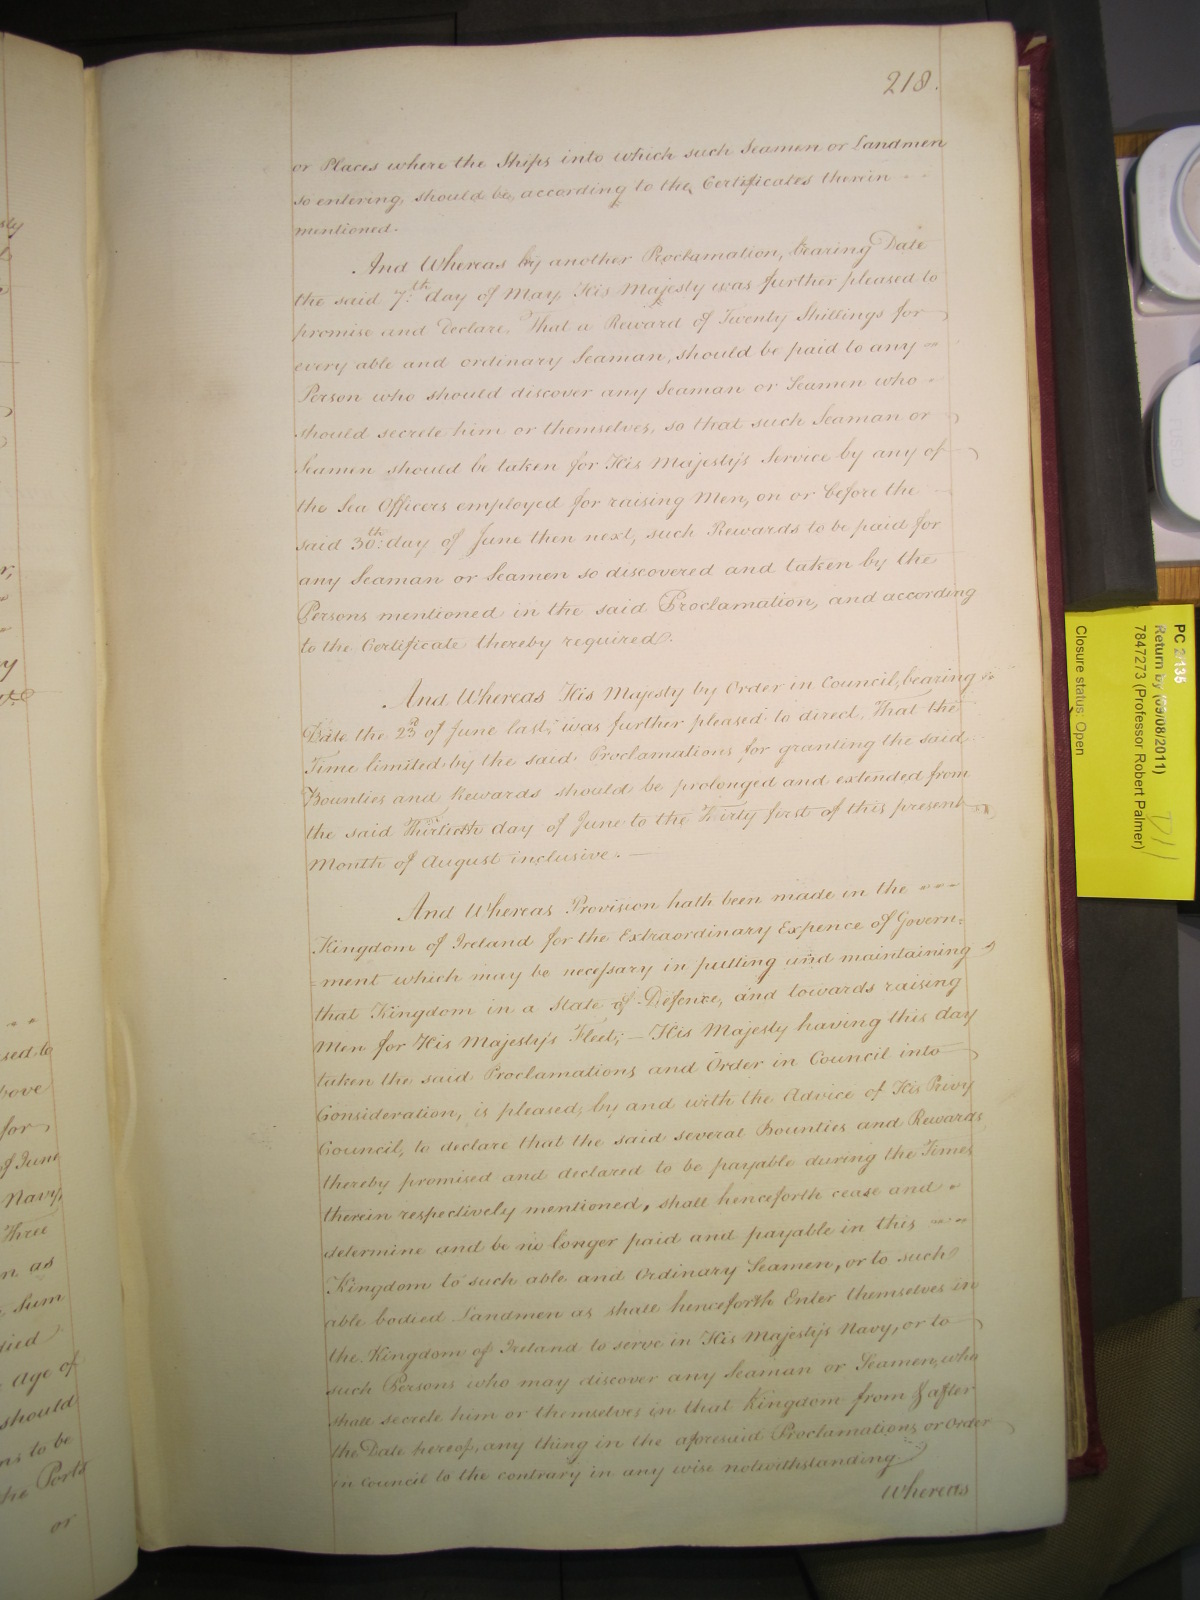 218.
or Places where the Ships into which such Seamen or Landmen
so entering, should be, according to the Certificates therein
mentioned.
And Whereas by another Proclamation, bearing Date
the said 7th. day of May, His Majesty was further pleased to
promise and Declare, That a Reward of Twenty Shillings for
every able and ordinary Seaman, should be paid to any
Person who should discover any Seaman or Seamen who
should secrete him or themselves, so that such Seaman or
Seamen should be taken for His Majesty's Service by any of
the Sea Officers employed for raising Men, on or before the
said 30th. day of June then next, such Rewards to be paid for
any Seaman or Seamen so discovered and taken by the
Persons mentioned in the said Proclamation, and according
to the Certificate thereby required.
And Whereas His Majesty by Order in Council, bearing
Date the 23d of June last, was further pleased to direct, That the
Time limited by the said Proclamations for granting the said
Bounties and Rewards should be prolonged and extended from
the said Thirtieth day of June to the Thirty first of this present
Month of August inclusive. —
And Whereas Provision hath been made in the
Kingdom of Ireland for the Extraordinary Expence of Govern=
=ment which may be necessary in putting and maintaining
that Kingdom in a State of Defence, and towards raising
Men for His Majesty's Fleet; — His Majesty having this day
taken the said Proclamations and Order in Council into
Consideration, is pleased, by and with the Advice of His Privy
Council, to declare that the said several Bounties and Rewards
thereby promised and declared to be payable during the Times
therein respectively mentioned, shall henceforth cease and
determine and be no longer paid and payable in this
Kingdom to such able and Ordinary Seamen, or to such
able bodied Landmen as shall henceforth Enter themselves in
the Kingdom of Ireland to serve in His Majesty's Navy, or to
such Persons who may discover any Seaman or Seamen, who
shall secrete him or themselves in that Kingdom from & after
the Date hereof, any thing in the aforesaid Proclamations or Order
in Council to the contrary in any wise notwithstanding.
Whereas
sed to
bove
for
of June
Navy,
Three
n as
Sum
died
Age of
should
ns to be
he Ports
or
PC 2/135
Return by (09/08/2011)
7847273 (Professor Robert Palmer)
Closure status: Open